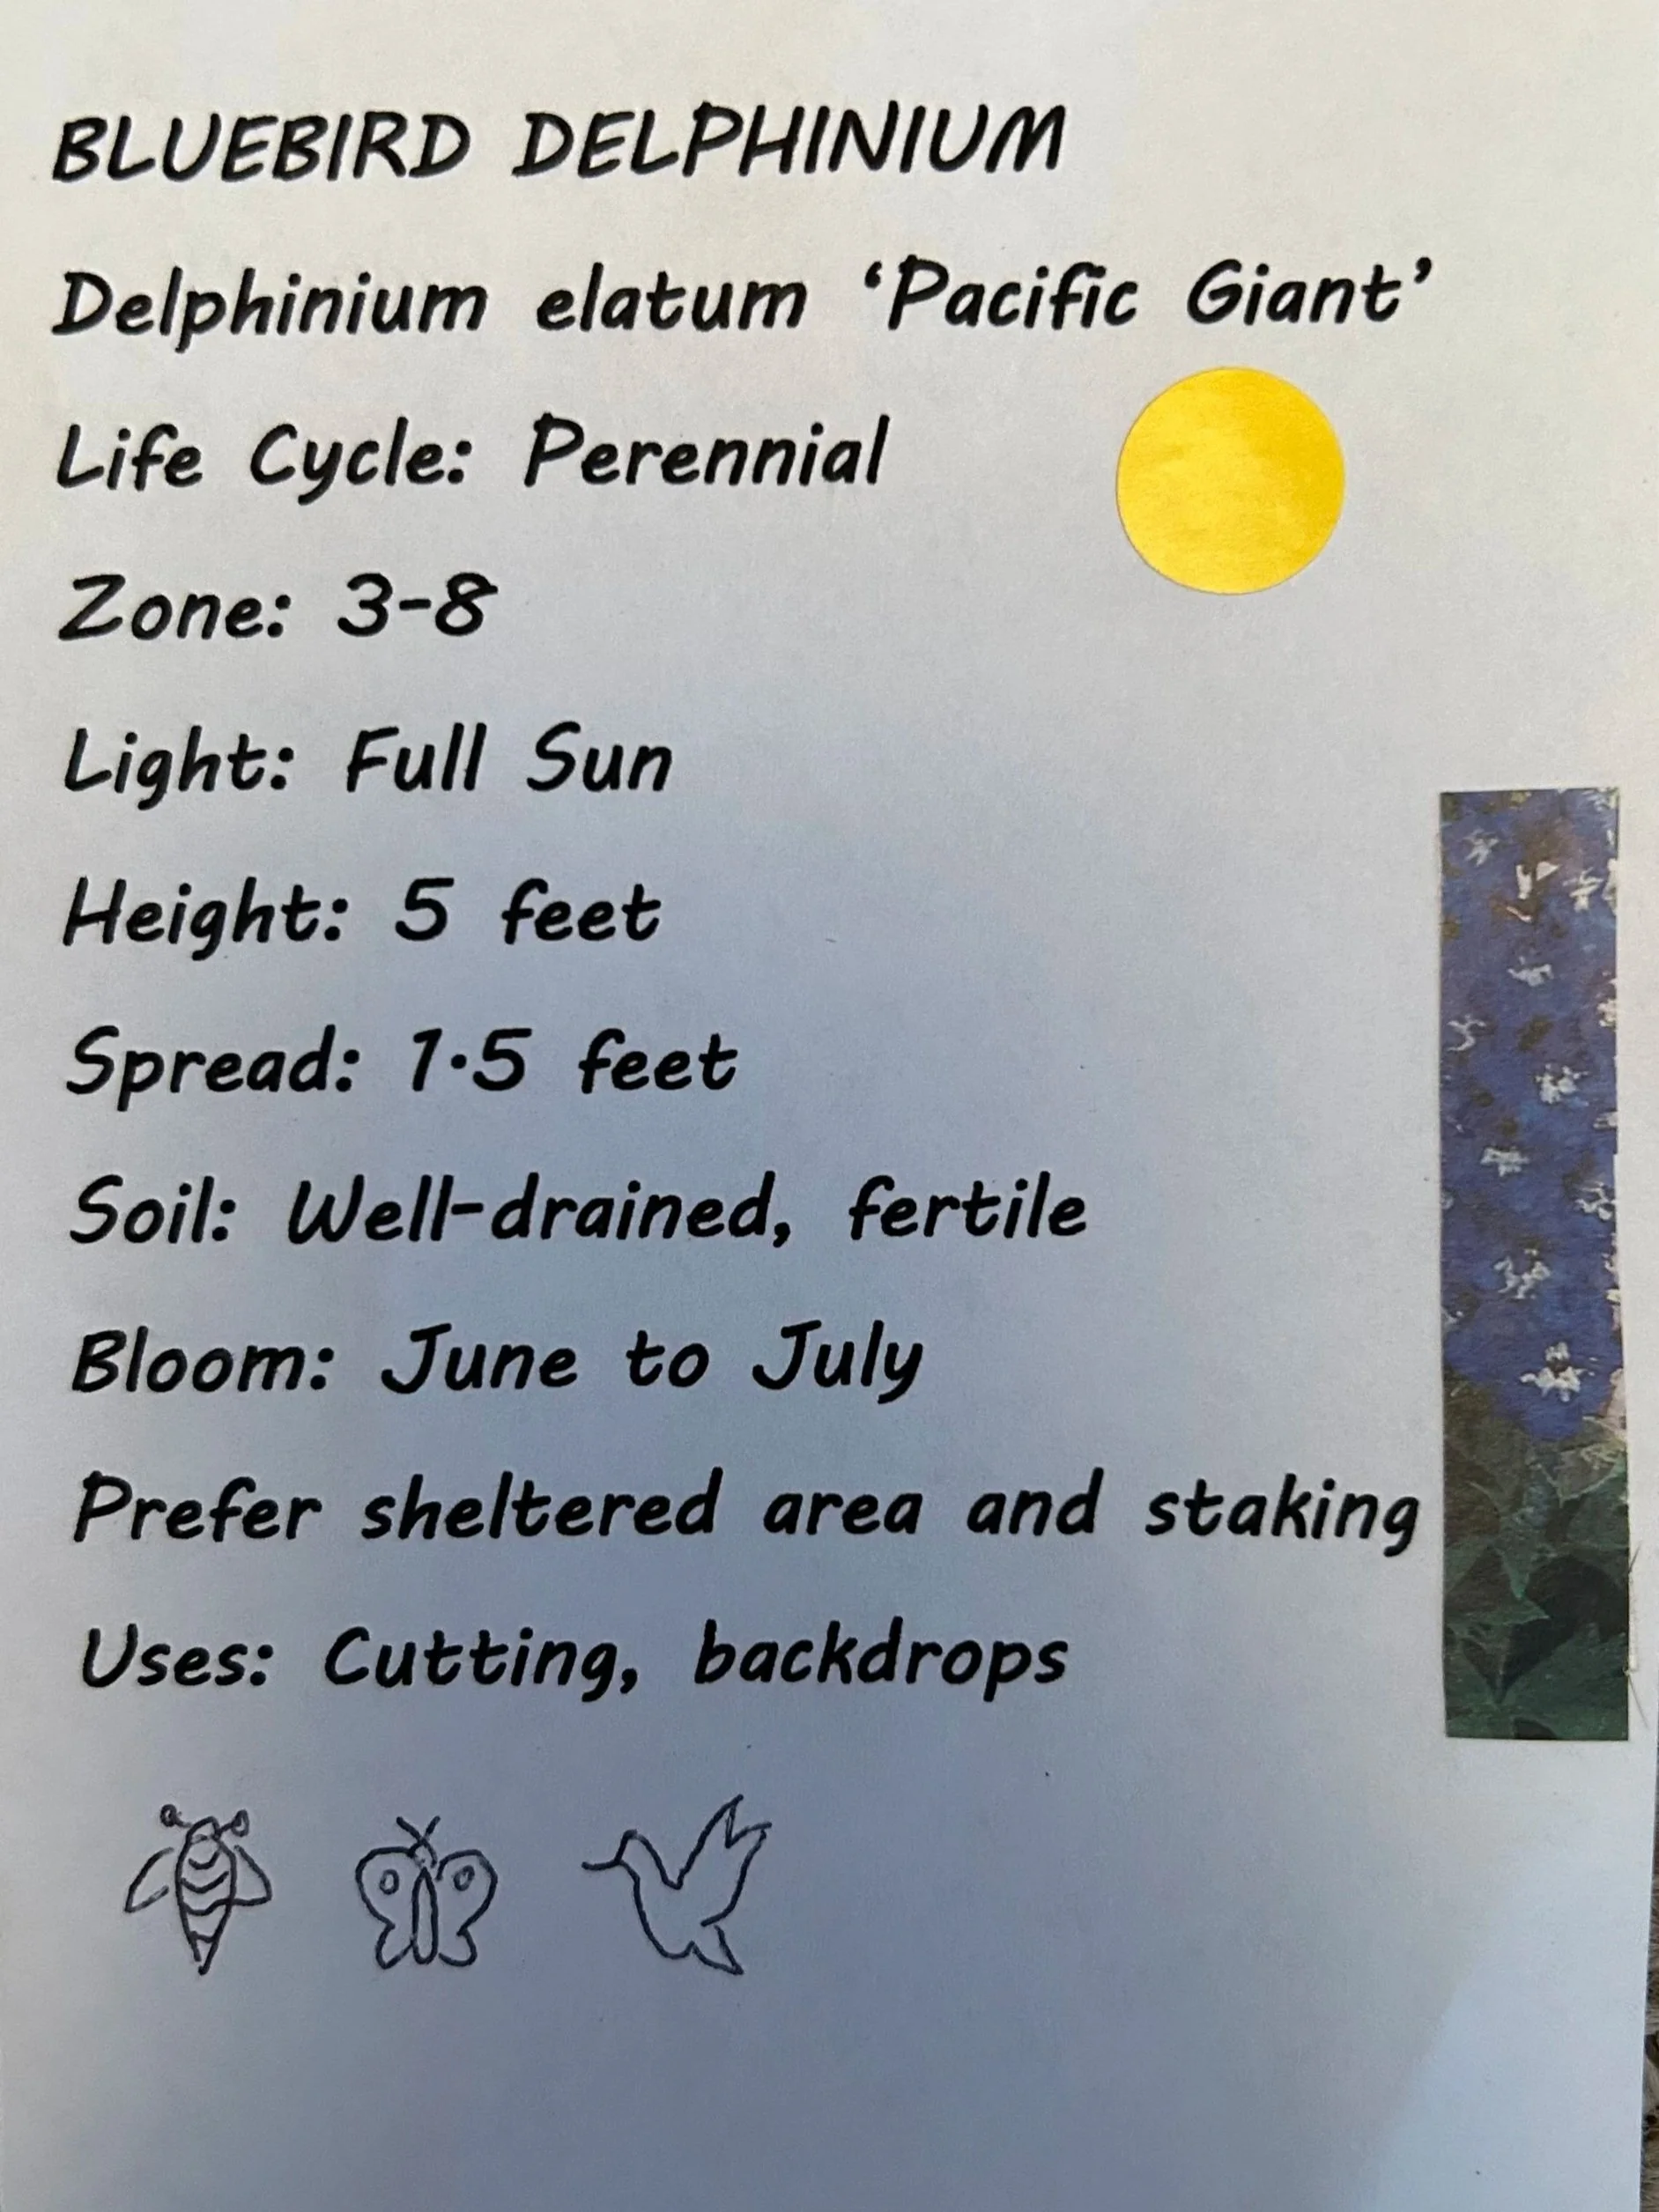 BLUEBIRD DELPHINIUM
Delphinium elatum ‘Pacific Giant’
Life Cycle: Perennial
Zone: 3-8
Light: Full Sun
Height: 5 feet
Spread: 1·5 feet
Soil: Well-drained, fertile
Bloom: June to July
Prefer sheltered area and staking
Uses: Cutting, backdrops